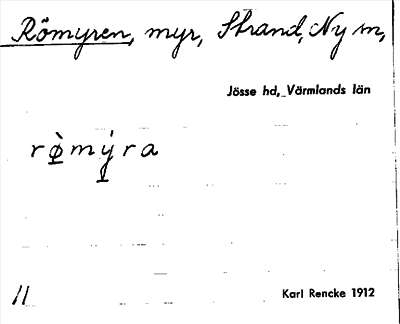 Römyren, myr, Strand, Ny sn,
Jösse hd, Värmlands län
rø̀mýra
11
Karl Rencke 1912